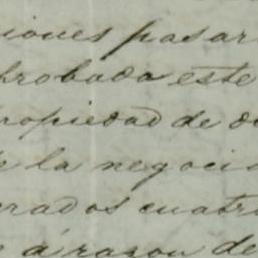 iones pasar
probada este
propiedad de d
e la negoci
erados cuatr
e á razon de